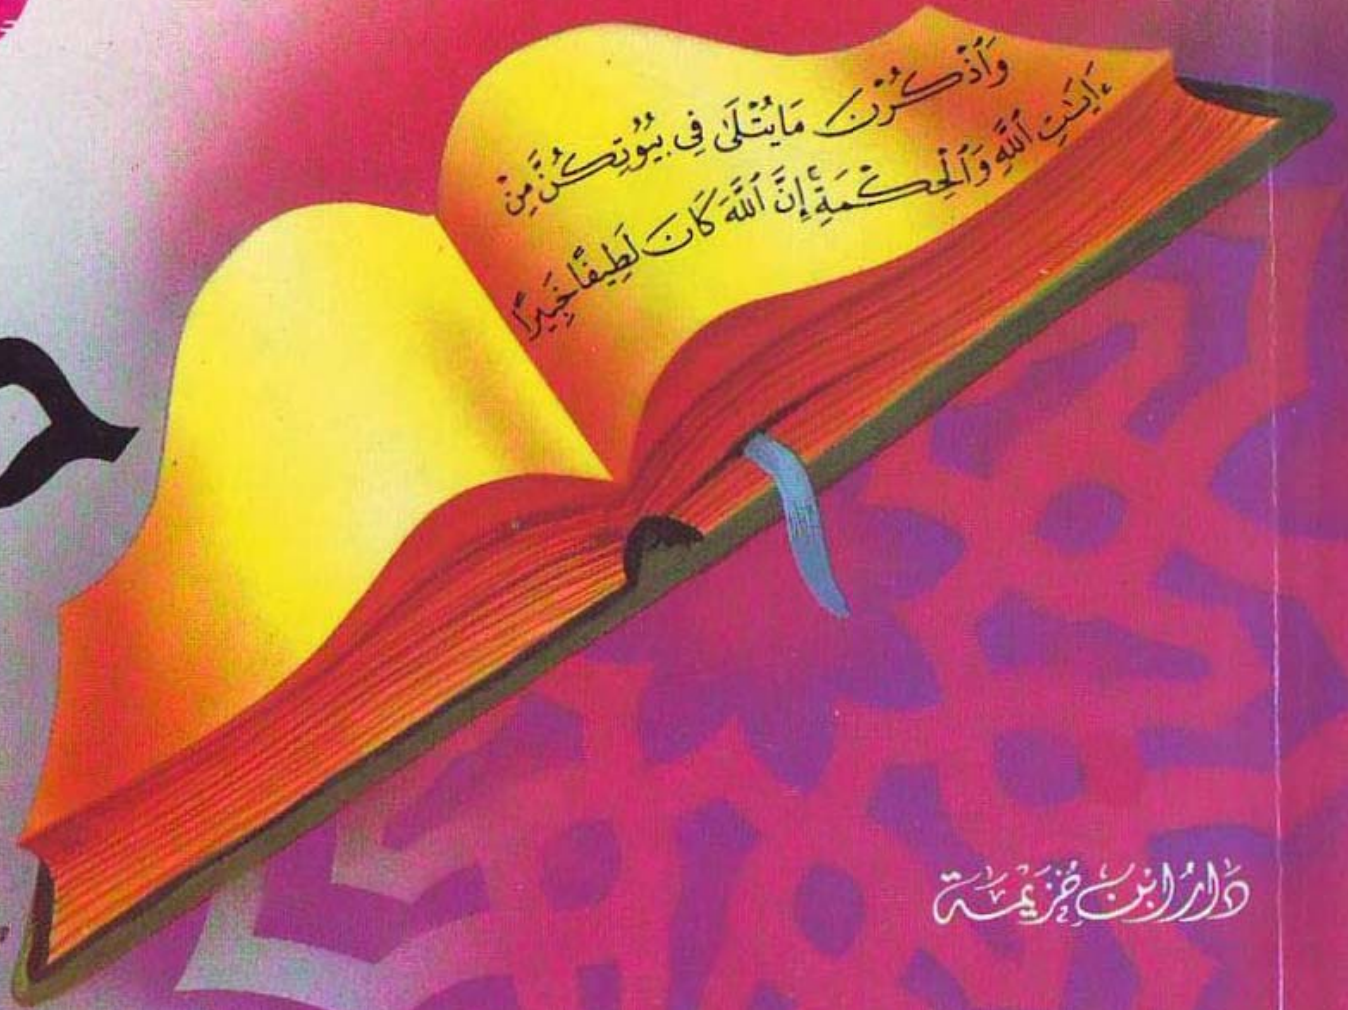 وَٱذْكُرْنَ مَا يُتْلَىٰ فِى بُيُوتِكُنَّ مِنْ
ءَايَٰتِ ٱللَّهِ وَٱلْحِكْمَةِ ۚ إِنَّ ٱللَّهَ كَانَ لَطِيفًا خَبِيرًا
دَارُ ابن خُزَيمَة